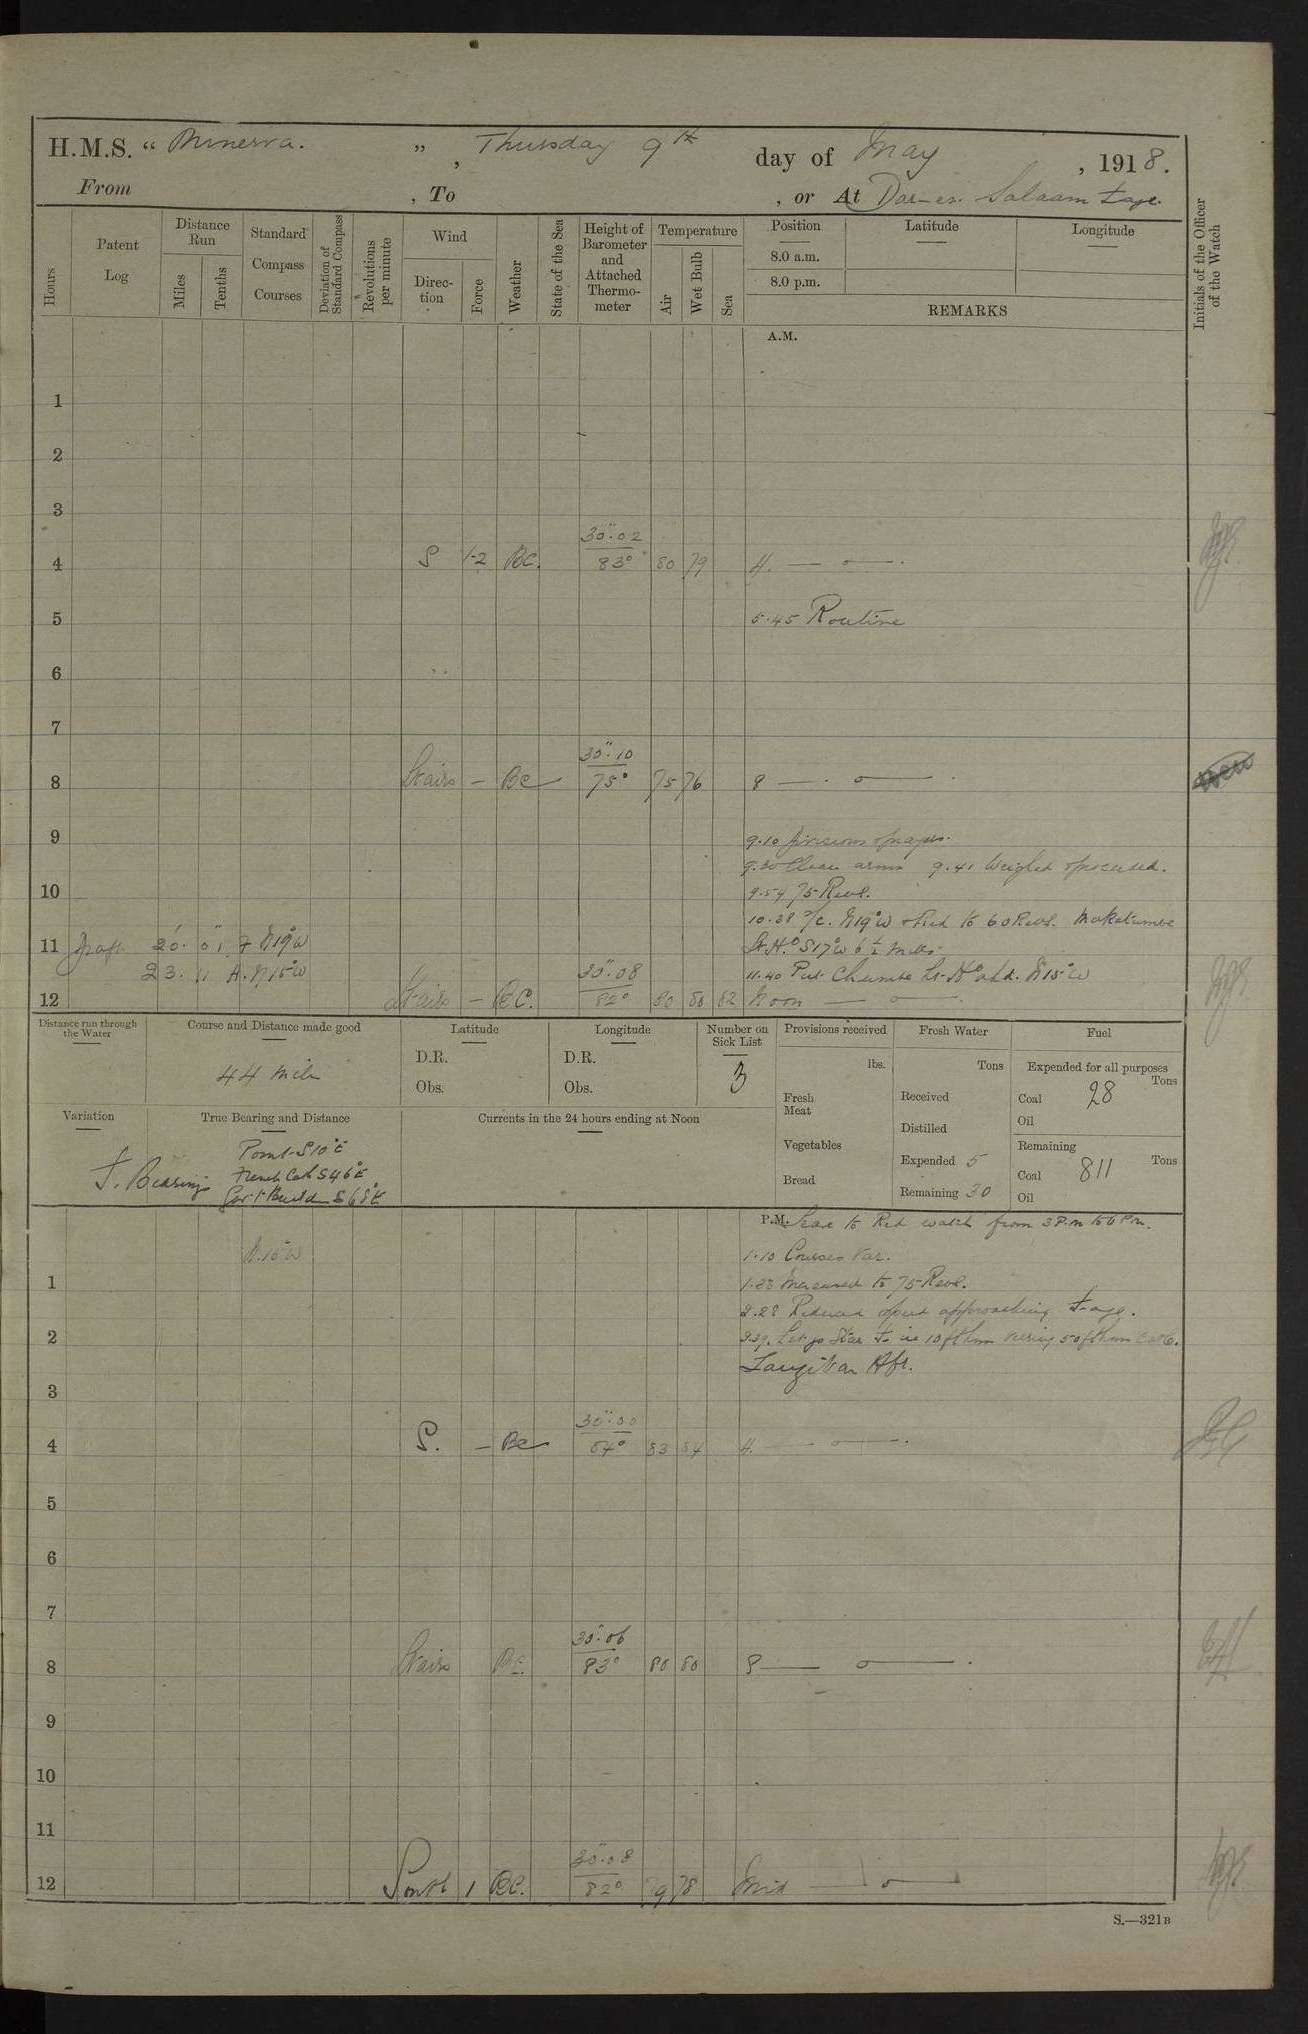 H.M.S. “ Minerva. ” , Thursday 9th day of May , 1918.
From , To , or At Dar-es-Salaam
Hours
Patent Log
Distance Run
Miles
Tenths
Standard Compass Courses
Deviation of Standard Compass
Revolutions per minute
Wind
Direction
Force
Weather
State of the Sea
Height of Barometer and Attached Thermometer
Temperature
Air
Wet Bulb
Sea
Position
Latitude
Longitude
8.0 a.m.
8.0 p.m.
REMARKS
Initials of the Officer of the Watch
A.M.
1
2
3
4 S 1-2 BC. 30".02 83° 80 79 4. — o — .
5 5.45 Routine
6
7
8 — BC 30".10 75° 75 76 8 — . o — .
9 9.10 Divisions & prayers.
9.30 Clean arms 9.41 Weighed & proceeded.
10 9.54 75 Revs.
10.38 A/C. N19°W & Red to 60 Revs. Makatumbe
11 N19°W Lt. Ho S17°W 6½ miles
23. N15°W 11.40 Pat. Chumbe Lt. Ho ahd. N15°W
12 — BC. 30".08 82° 80 80 82 Noon — o — .
Distance run through the Water
Course and Distance made good
44 miles
Latitude
D.R.
Obs.
Longitude
D.R.
Obs.
Number on Sick List
3
Provisions received
lbs.
Fresh Meat
Vegetables
Bread
Fresh Water
Tons
Received
Distilled
Expended 5
Remaining 30
Fuel
Expended for all purposes
Tons
Coal 28
Oil
Remaining
Tons
Coal 811
Oil
Variation
True Bearing and Distance
Bearings
Point S10°E
French Cath S46°E
Gov't Build S68°E
Currents in the 24 hours ending at Noon
P.M. Leave to Red watch from 3 P.M to 6 P.M.
N.15°W 1.10 Courses Var.
1 1.28 Increased to 75 Revs.
2.28 Reduced speed approaching
2 Let go Star in 10 fthm veering 50 fthm Cable.
Zanzibar Hbr.
3
4 S. — BC 30".00 84° 83 84 4. — o — .
5
6
7
8 BC 30".06 83° 80 80 8 — o — .
9
10
11
12 South 1 BC. 30".08 82° 79 78 Mid — o —
S.—321B